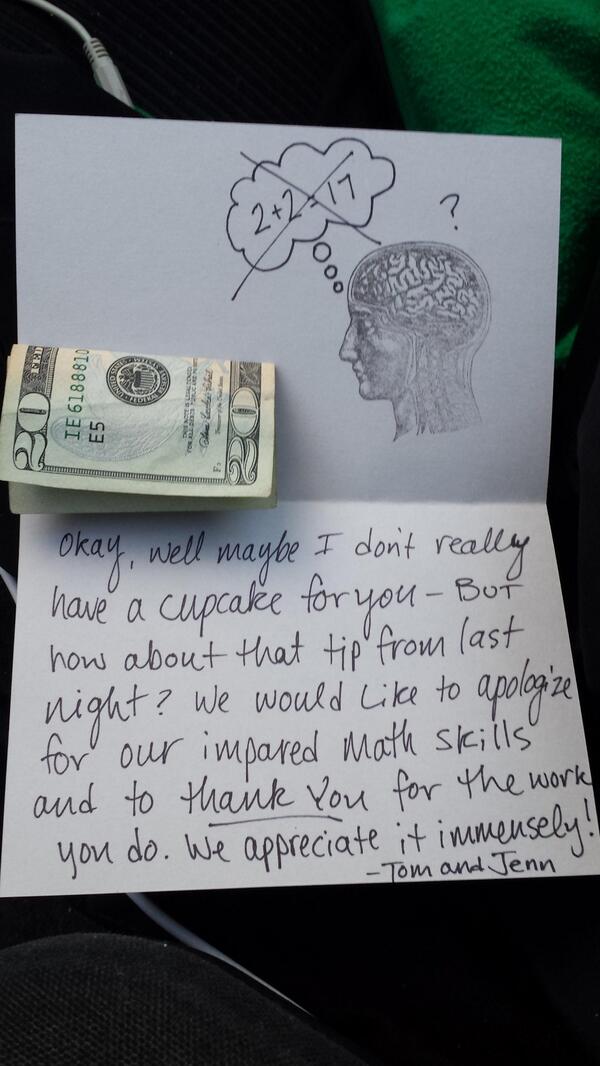 2+2=17
?
20
IE6188810
E5
20
Okay, well maybe I don't really
have a cupcake for you - BUT
how about that tip from last
night? We would like to apologize
for our impared math skills
and to thank you for the work
you do. We appreciate it immensely!
-Tom and Jenn